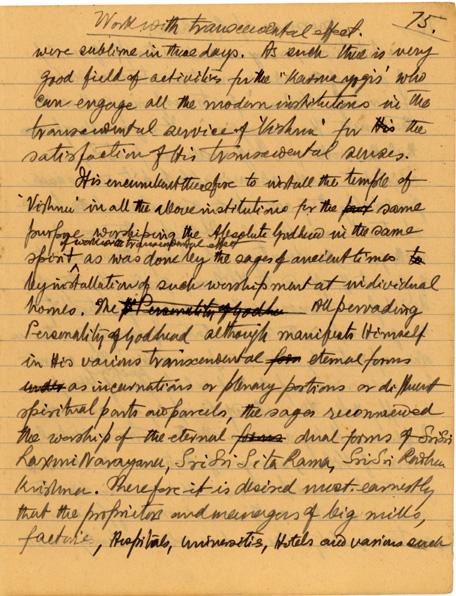 Work with transcendental effect. 75.
were sublime in those days. As such there is very
good field of activities for the 'Karma yogis' who
can engage all the modern institutions in the
transcendental service of 'Vishnu' for His the
satisfaction of His transcendental senses.
It is encumbent therefore to install the temple of
'Vishnu' in all the above institutions for the same
purpose worshiping the Absolute Godhead in the same
of work with transcendental effect
spirit as was done by the sages of ancient times to
by installation of such worshipment at individual
homes. The Personality of Godhea All pervading
Personality of Godhead although manifests Himself
in His various transcendental form eternal forms
as incarnations or plenary portions or different
spiritual parts and parcels, the sages recommended
the worship of the eternal forms dual forms of Sri Sri
Laxmi Narayana, Sri Sri Sita Rama, Sri Sri Radha
Krishna. Therefore it is desired most earnestly
that the proprietors and managers of big mills,
factories, Hospitals, Universities, Hotels and various such